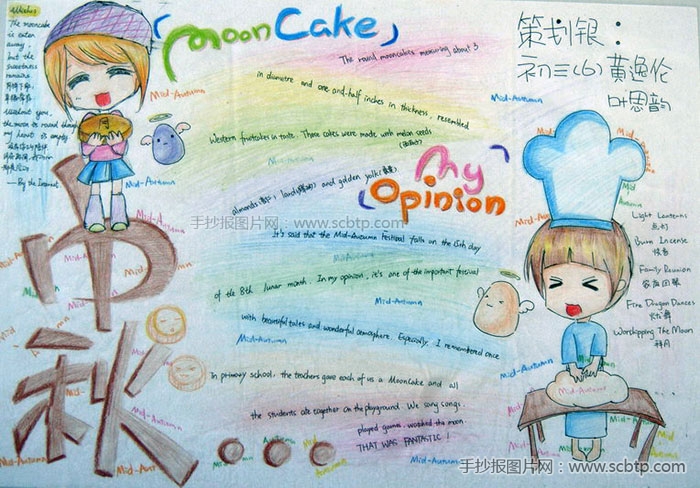 Wishes
The mooncake
is eaten
away,
but the
sweetness
remains
Without you,
the moon is round though
my heart is empty
—By the Internet
Moon Cake
The round mooncakes measuring about 3
in diametre and one and-half inches in thickness, resembled
Western fruitcakes in taste. These cakes were made with melon seeds
almonds, lard and golden yolk
My
Opinion
It's said that the Mid-Autumn Festival falls on the 15th day
of the 8th lunar month. In my opinion, it's one of the important festival
with beautiful tales and wonderful atmosphere. Especially, I remembered once
In primary school, the teachers gave each of us a MoonCake and all
the students ate together on the playground. We sang songs.
played games. wached the moon.
THAT WAS FANTASTIC!
策划银：
初三(6) 黄逸伦
叶思韵
Light Lanterns
点灯
Burn Incense
烧香
Family Reunion
家庭团聚
Fire Dragon Dances
火龙舞
Worshipping The Moon
拜月
中
秋
Mid-Autumn
Mid-Autumn
Mid-Autumn
Mid-Autumn
Mid-Autumn
Mid-Autumn
Mid-Autumn
手抄报图片网：www.scbtp.com
手抄报图片网：www.scbtp.com
手抄报图片网：www.scbtp.com